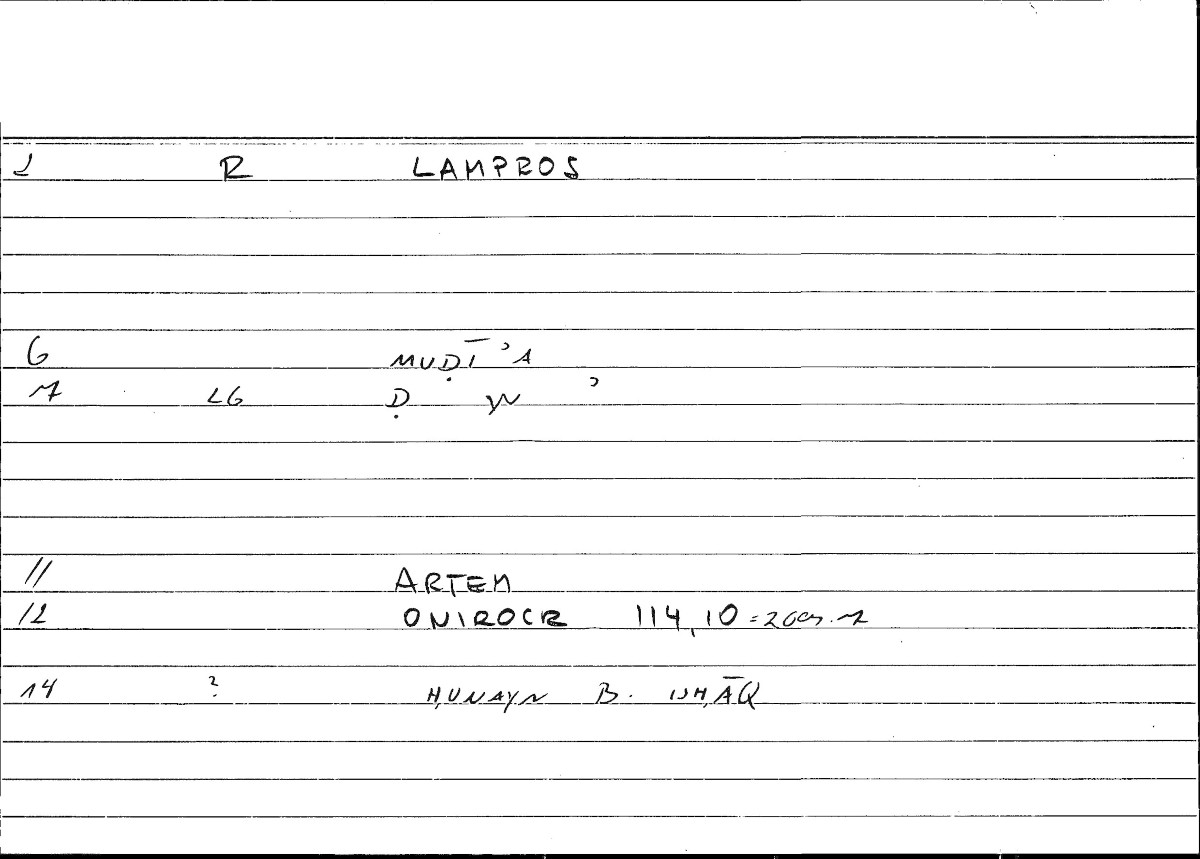 2 R LAMPROS
6 MUḌĪʾA
7 LG Ḍ W ʾ
11 ARTEM
12 ONIROCR 114,10 =
14 ? ḤUNAYN B. ISḤĀQ